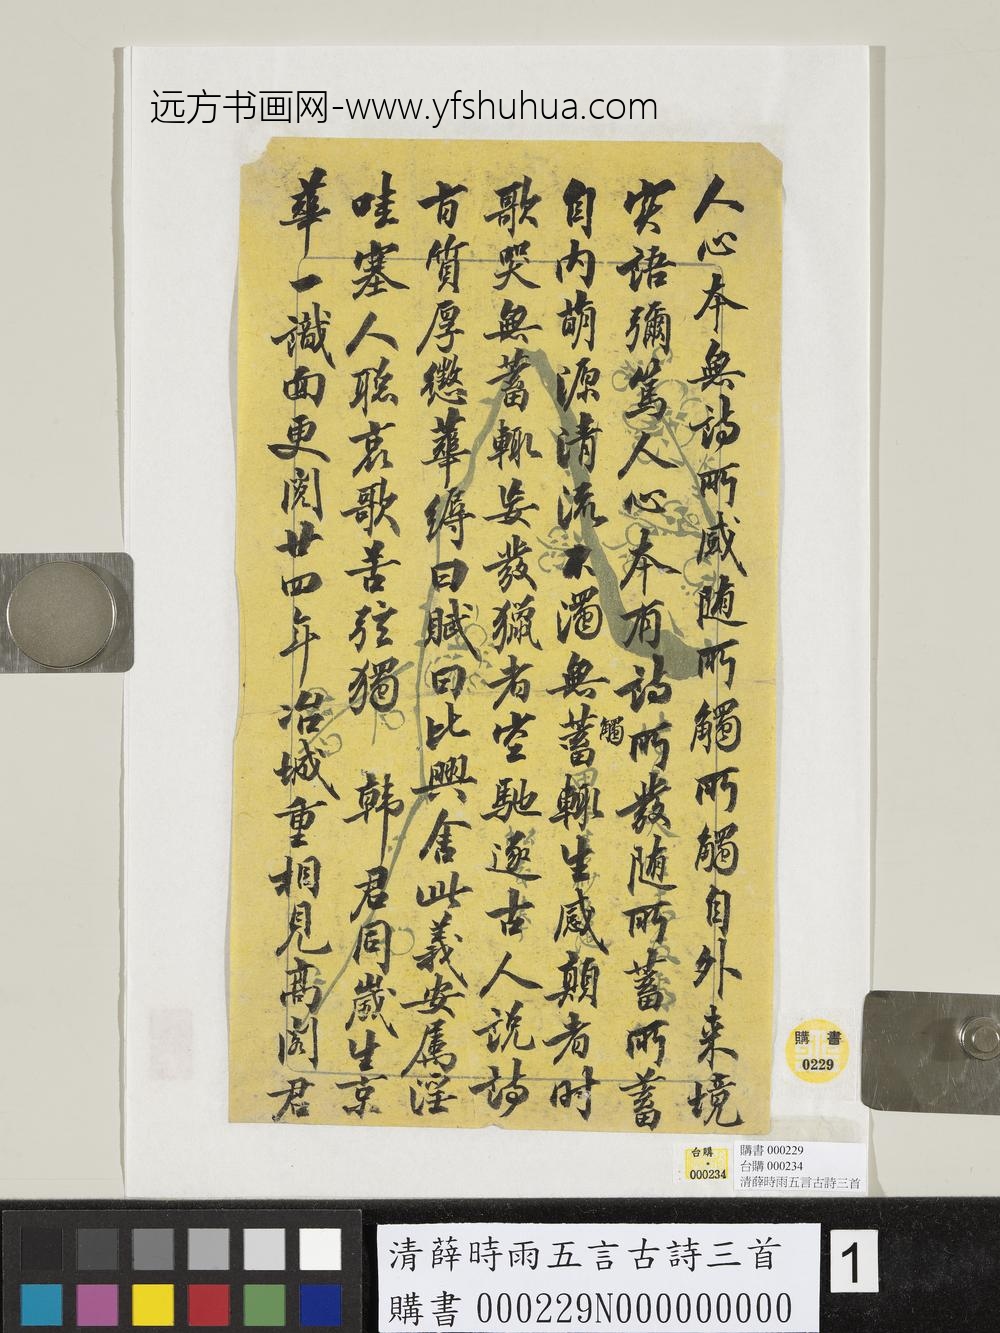 远方书画网-www.yfshuhua.com
人心本無詩所感随所觸所觸自外来境
實語彌篤人心本有詩所發随所蓄所蓄
自内萌源清流不濁無蓄輙生感顛者时
觸
歌哭無蓄輙妄發獵者空馳逐古人说詩
旨質厚懲華縟曰賦曰比興舍此義安屬淫
哇塞人聡哀歌苦弦獨 韩君同歲生京
華一識面更閲廿四年冶城重相見髙阁君
購書
0229
台購
000234
購書 000229
台購 000234
清薛時雨五言古詩三首
清薛時雨五言古詩三首
購書 000229N000000000
1